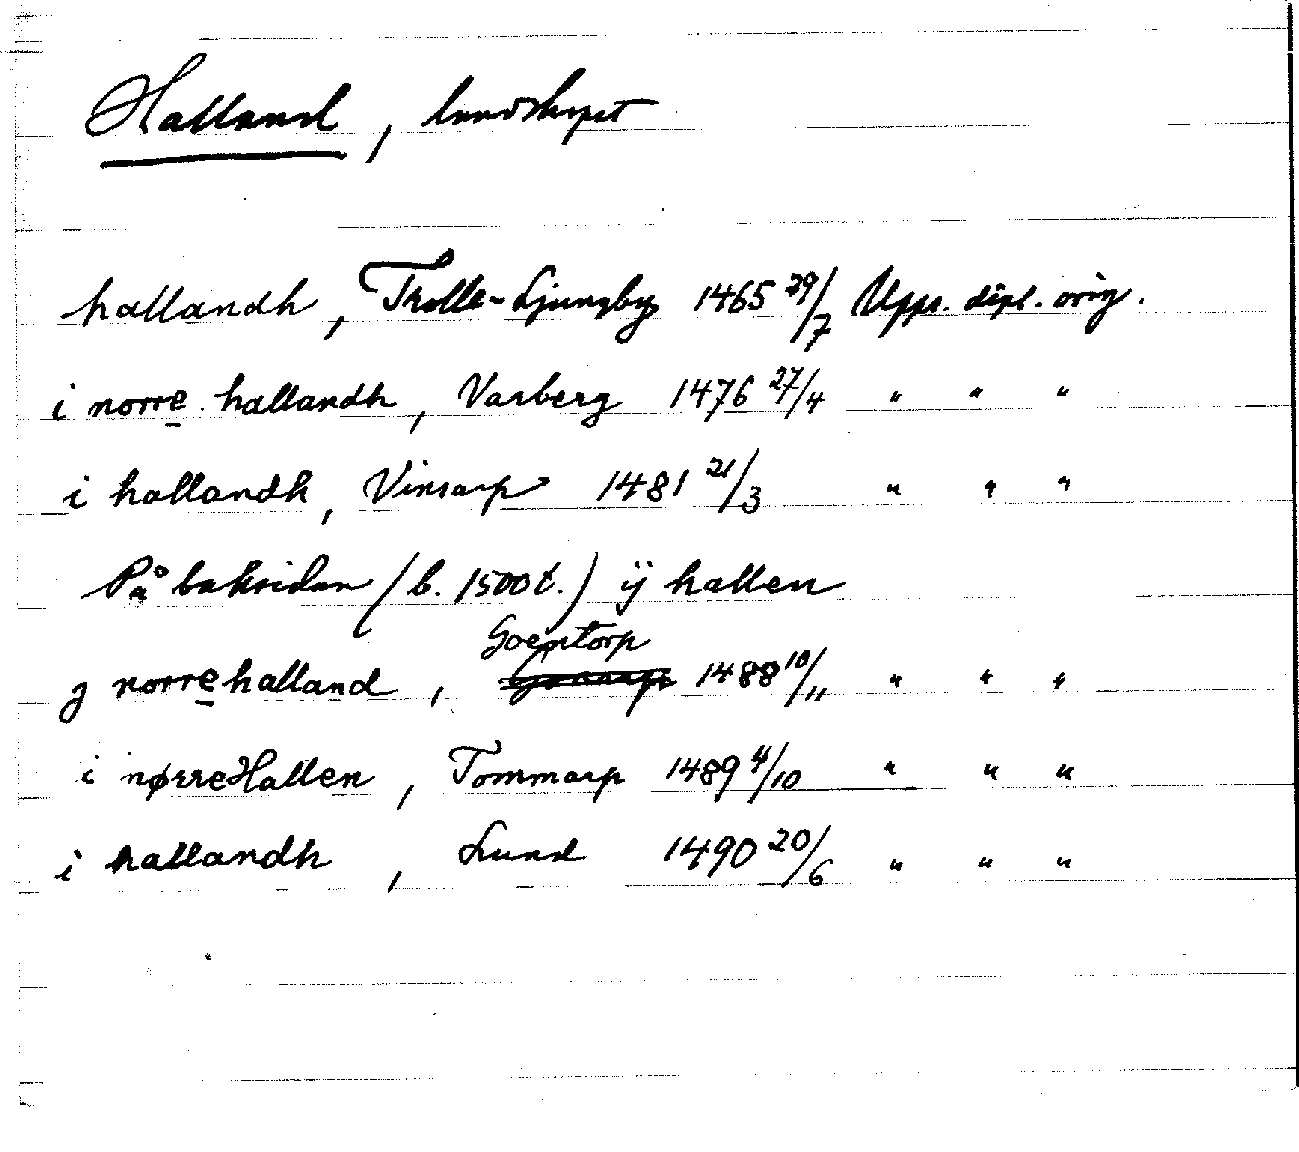 Halland, landskapet
hallandh, Trolle-Ljungby 1465 29/7 Upps. dipl. orig.
i norre hallandh, Varberg 1476 27/4 " " "
i hallandh, Vinsarp 1481 21/3 " " "
På baksidan (b. 1500t.) ij hallen
Goentorp
j norre halland, 1488 10/11 " " "
i nørre Hallen, Tommarp 1489 4/10 " " "
i hallandh, Lund 1490 20/6 " " "